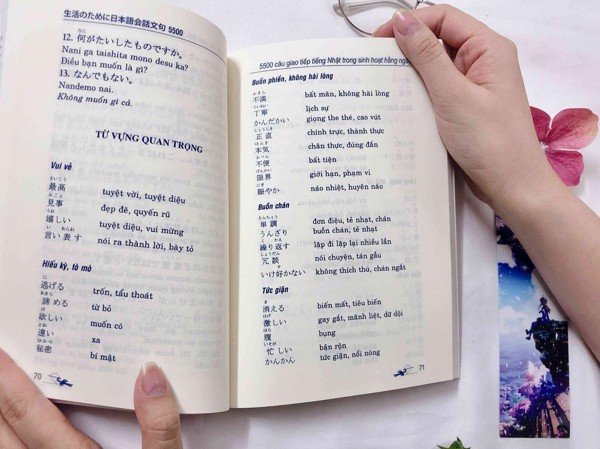 生活のために日本語会話文句 5500
なに
12. 何がたいしたものですか。
Nani ga taishita mono desu ka?
Điều bạn muốn là gì?
13. なんでもない。
Nandemo nai.
Không muốn gì cả.
TỪ VỰNG QUAN TRỌNG
Vui vẻ
さいこう
最高 tuyệt vời, tuyệt diệu
みごと
見事 đẹp đẽ, quyến rũ
うれ
嬉しい tuyệt diệu, vui mừng
い あらわ
言い表す nói ra thành lời, bày tỏ
Hiếu kỳ, tò mò
に
逃げる trốn, tẩu thoát
あきら
諦める từ bỏ
ほ
欲しい muốn có
とお
遠い xa
ひみつ
秘密 bí mật
70
5500 câu giao tiếp tiếng Nhật trong sinh hoạt hằng ngày
Buồn phiền, không hài lòng
ふまん
不満 bất mãn, không hài lòng
ていねい
丁寧 lịch sự
かんだかい giọng the thé, cao vút
しょうじき
正直 chính trực, thành thực
ほんき
本気 chân thực, đúng đắn
ふべん
不便 bất tiện
げんかい
限界 giới hạn, phạm vi
にぎ
賑やか náo nhiệt, huyên náo
Buồn chán
たんちょう
単調 đơn điệu, tẻ nhạt, chán
うんざり buồn chán, tẻ nhạt
く かえ
繰り返す lặp đi lặp lại nhiều lần
じょうだん
冗談 nói chuyện, tán gẫu
いけ好かない không thích thú, chán ngắt
Tức giận
き
消える biến mất, tiêu biến
はげ
激しい gay gắt, mãnh liệt, dữ dội
はら
腹 bụng
いそが
忙しい bận rộn
かんかん tức giận, nổi nóng
71